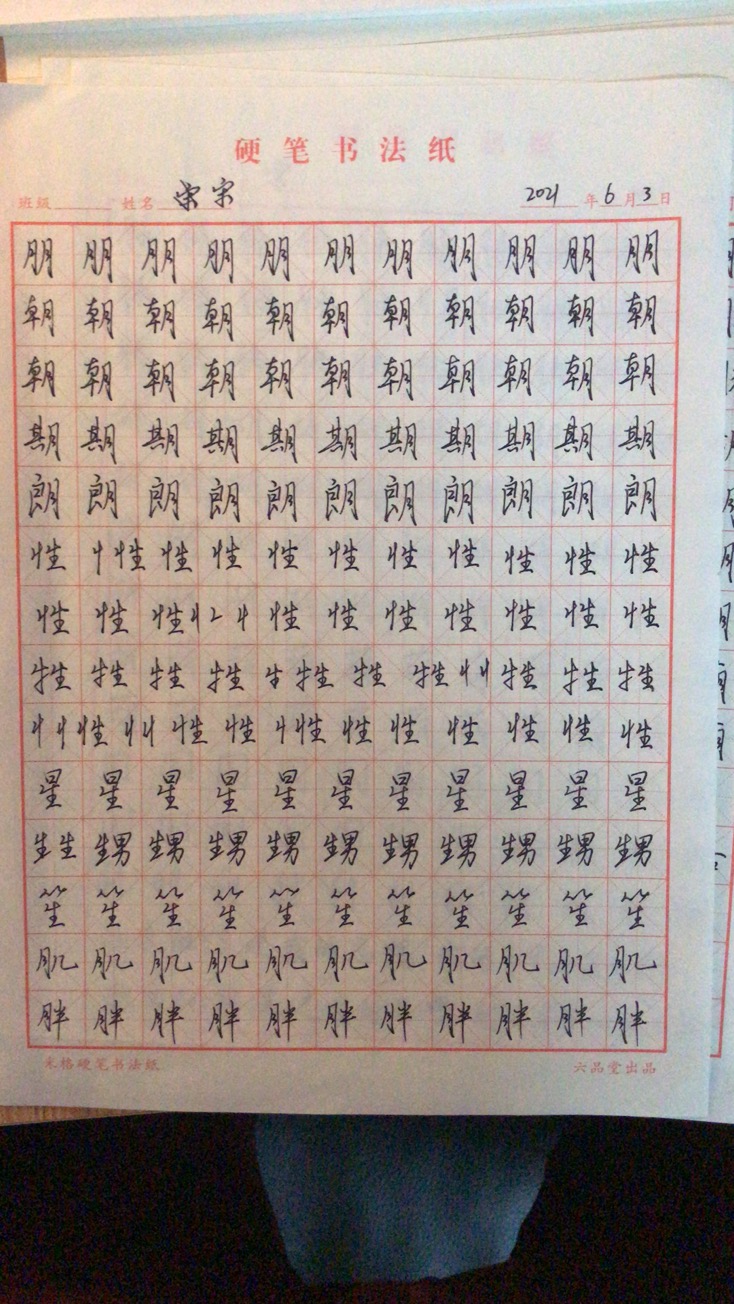 硬笔书法纸
班级 姓名 宋宋 2021 年 6 月 3 日
朋 朋 朋 朋 朋 朋 朋 朋 朋 朋 朋
朝 朝 朝 朝 朝 朝 朝 朝 朝 朝 朝
朝 朝 朝 朝 朝 朝 朝 朝 朝 朝 朝
期 期 期 期 期 期 期 期 期 期 期
朗 朗 朗 朗 朗 朗 朗 朗 朗 朗 朗
性 忄 性 性 性 性 性 性 性 性 性 性
性 性 性 忄 忄 性 性 性 性 性 性 性
牲 牲 牲 牲 牜 牲 牲 牲 忄 忄 牲 牲 牲
忄 忄 性 忄 忄 性 性 忄 性 性 性 性 性 性 性
星 星 星 星 星 星 星 星 星 星 星
生 生 甥 甥 甥 甥 甥 甥 甥 甥 甥 甥
笙 笙 笙 笙 笙 笙 笙 笙 笙 笙 笙
肌 肌 肌 肌 肌 肌 肌 肌 肌 肌 肌
胖 胖 胖 胖 胖 胖 胖 胖 胖 胖 胖
米格硬笔书法纸 六品堂出品